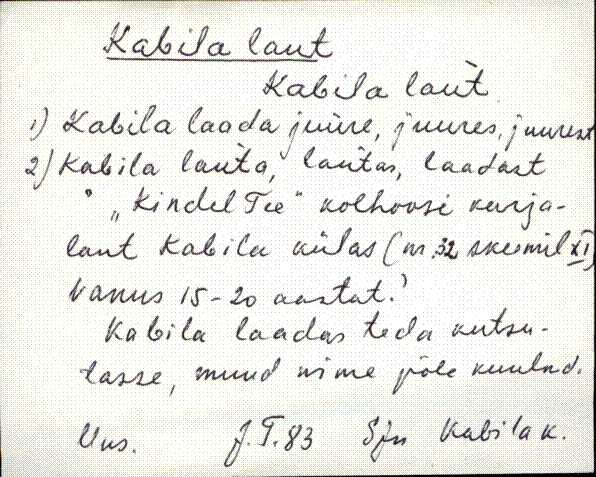 Kabila laut
Kabila laut
1) Kabila laada juure, juures, juurest
2) Kabila lauta, lautas, laadast
"Kindel Tee" kolhoosi karja-
laut Kabila külas (nr. 32 skeemil XI)
Vanus 15-20 aastat.
Kabila laadas teda kutsu-
tasse, muud nime pole kuulnd.
Uus. J.T. 83 Sjn Kabila k.